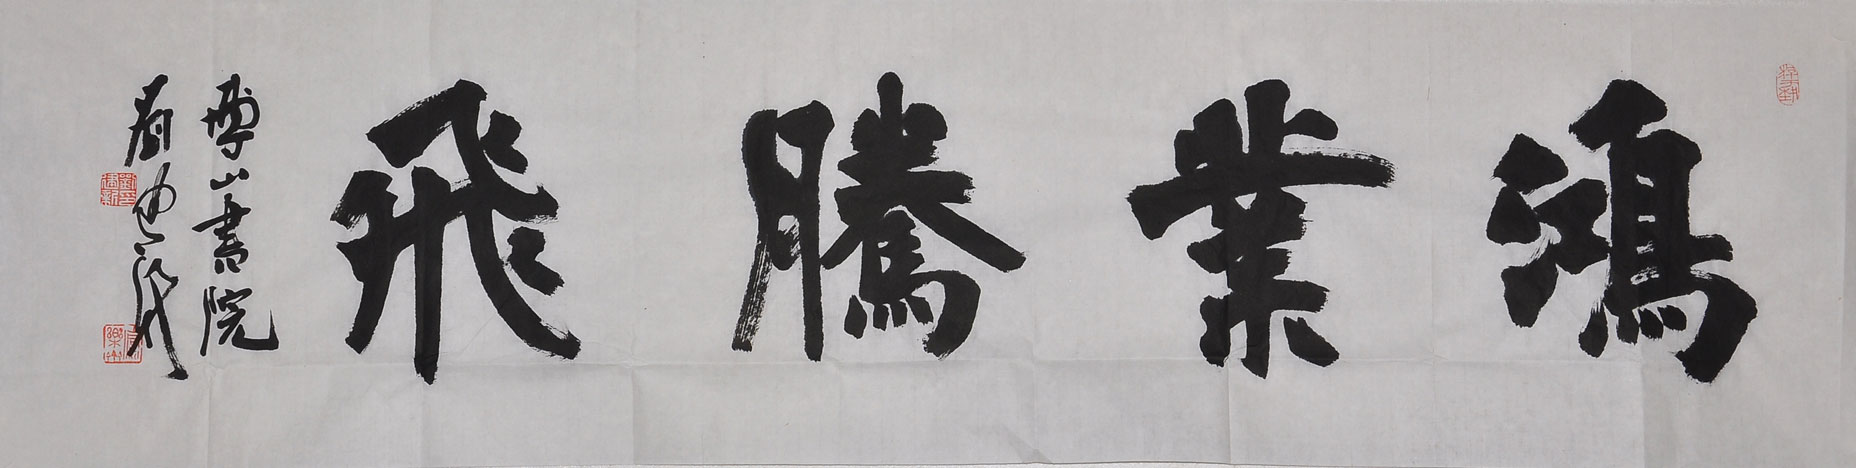 鴻業騰飛
博山書院